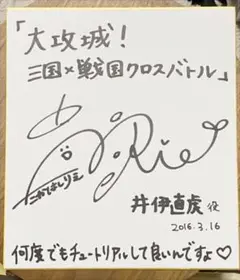 「大攻城！
三国×戦国クロスバトル」
Rie
井伊直虎 役
2016.3.16
何度でもチュートリアルして良いんですよ♡